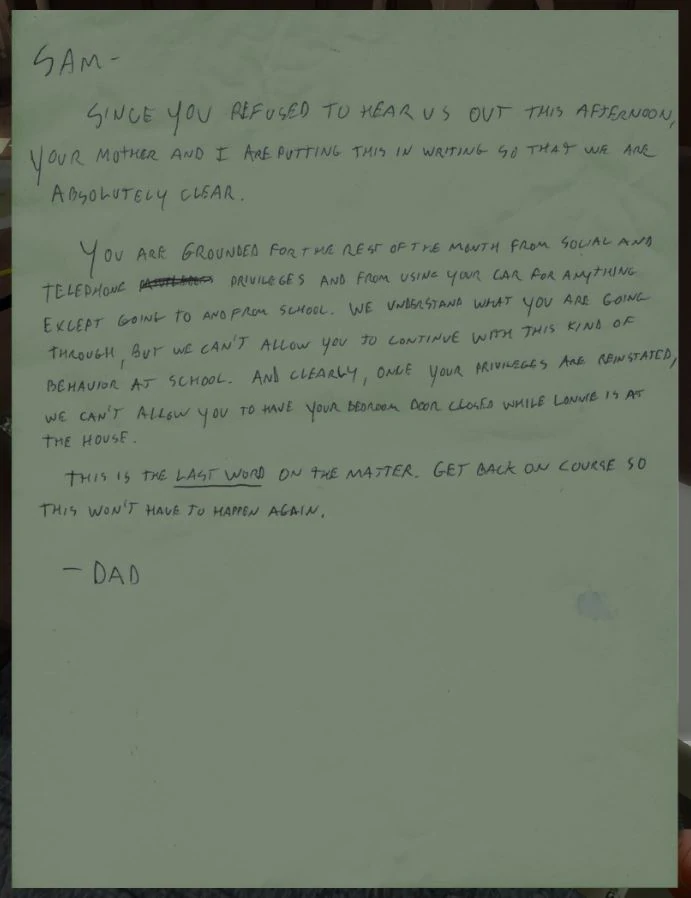 SAM-
SINCE YOU REFUSED TO HEAR US OUT THIS AFTERNOON,
YOUR MOTHER AND I ARE PUTTING THIS IN WRITING SO THAT WE ARE
ABSOLUTELY CLEAR.
YOU ARE GROUNDED FOR THE REST OF THE MONTH FROM SOCIAL AND
TELEPHONE PRIVILEGES AND FROM USING YOUR CAR FOR ANYTHING
EXCEPT GOING TO AND FROM SCHOOL. WE UNDERSTAND WHAT YOU ARE GOING
THROUGH, BUT WE CAN'T ALLOW YOU TO CONTINUE WITH THIS KIND OF
BEHAVIOR AT SCHOOL. AND CLEARLY, ONCE YOUR PRIVILEGES ARE REINSTATED,
WE CAN'T ALLOW YOU TO HAVE YOUR BEDROOM DOOR CLOSED WHILE LONNIE IS AT
THE HOUSE.
THIS IS THE LAST WORD ON THE MATTER. GET BACK ON COURSE SO
THIS WON'T HAVE TO HAPPEN AGAIN.
- DAD